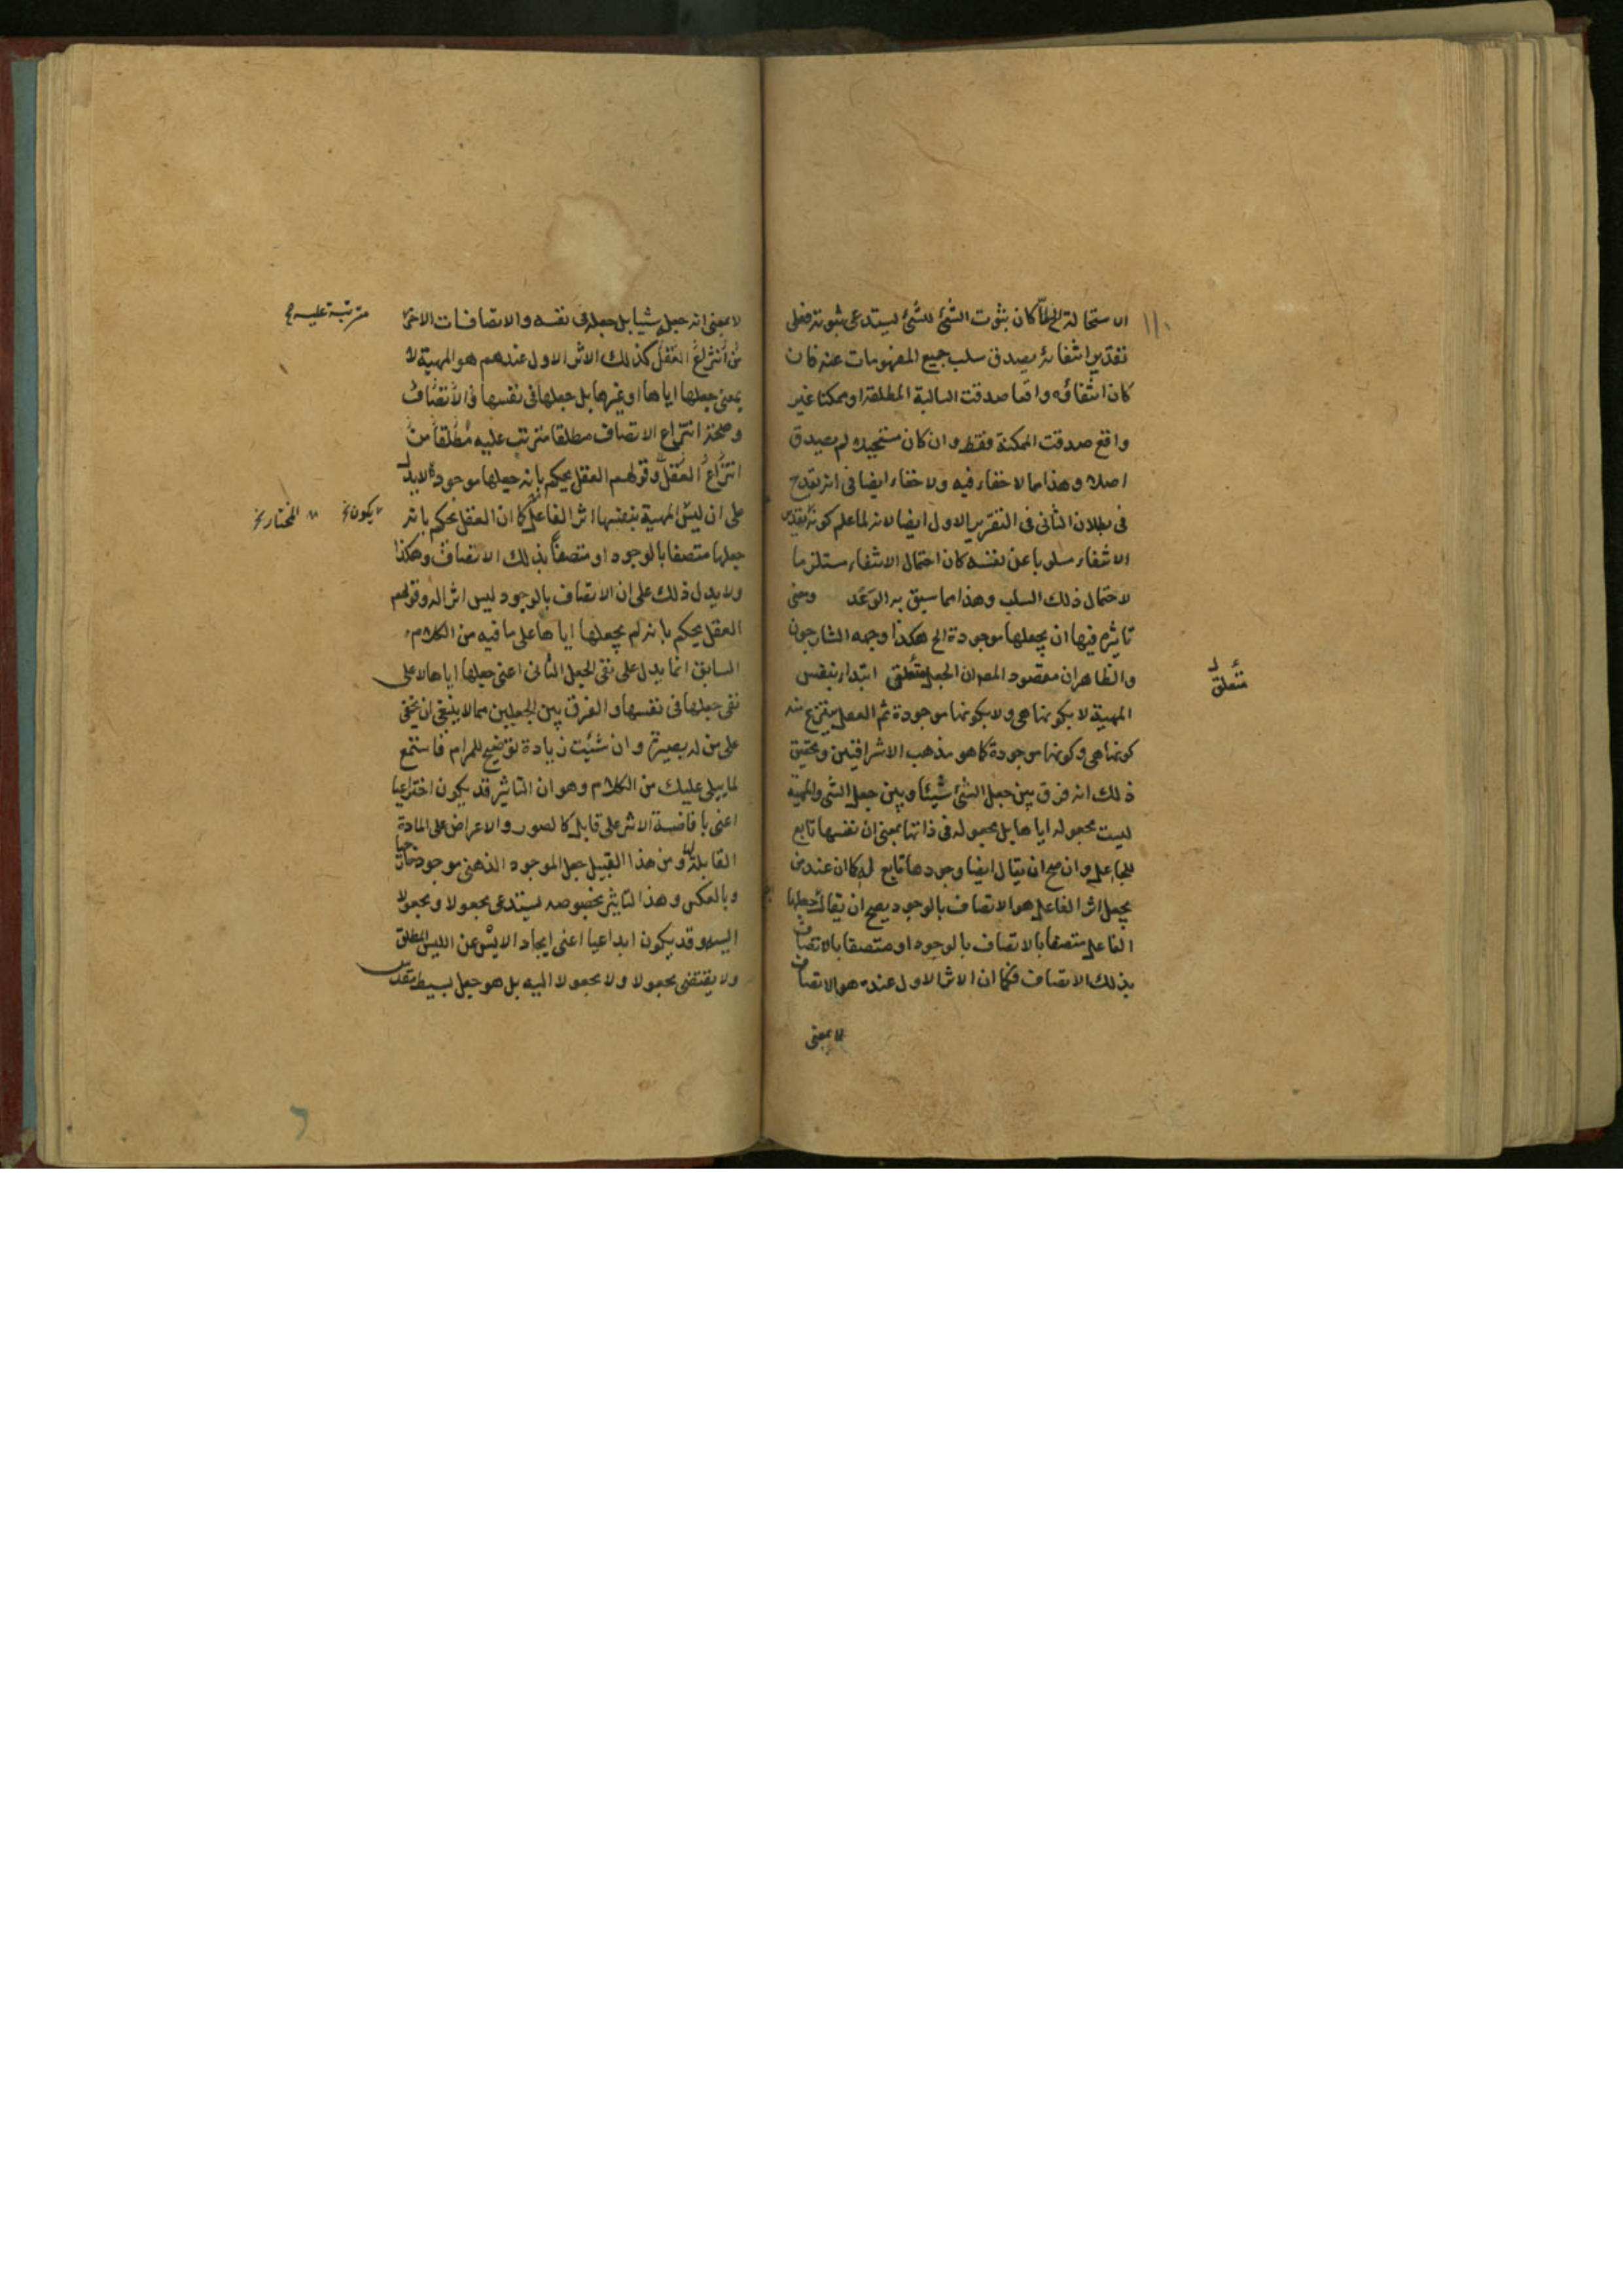 الاستحالة الخ لما كان ثبوت الشئ للشئ يستدعى ثبوته فعلى
تقدير انتفائه يصدق سلب جميع المفهومات عنه فان
كان انتفاؤه واقعا صدقت السالبة المطلقة او ممكنا غير
واقع صدقت الممكنة فقط وان كان مستحيلا لم يصدق
اصلا وهذا مما لا خفاء فيه ولا خفاء ايضا فى انه يقدح
فى بطلان الثانى فى التقرير الاول ايضا لانه لما علم كونه بتقدير
الانتفاء مسلوبا عن نفسه كان احتمال الانتفاء مستلزما
لاحتمال ذلك السلب وهذا مما سبق به الوعد ومعنى
تاثيره فيها ان يجعلها موجودة الخ هكذا وجهه الشارحون
والظاهر ان مقصود المصـ ان الجعل متعلق ابتداء بنفس
متعلق
المهية لا بكونها هى ولا بكونها موجودة ثم العقل ينتزع منه
كونها هى وكونها موجودة كما هو مذهب الاشراقيين وتحقيق
ذلك انه فرق بين جعل الشئ شيئا وبين جعل الشئ والمهية
ليست مجعولة اياها بل مجعولة فى ذاتها بمعنى ان نفسها تابع
للجاعل وان صح ان يقال ايضا وجودها تابع له كما ان عند من
يجعل اثر الفاعل هو الاتصاف بالوجود يصح ان يقال جعلها
الفاعل متصفا بالاتصاف بالوجود او متصفا بالاتصاف
بذلك الاتصاف فكما ان الاثر الاول عنده هو الاتصاف
لا بمعنى
لا بمعنى انه جعله شيئا بل جعله فى نفسه والاتصافات الاخر
مترتبة عليه
من انتزاع العقل كذلك الاثر الاول عندهم هو المهية لا
بمعنى جعلها اياها او غيرها بل جعلها فى نفسها والاتصاف
وصحة انتزاع الاتصاف مطلقا مترتب عليه مطلقا من
انتزاع العقل وقولهم العقل يحكم بانه جعلها موجودة لا يدل
على ان ليس المهية بنفسها اثر الفاعل كما ان العقل يحكم بانه
يكون المختار
جعلها متصفا بالوجود او متصفا بذلك الاتصاف وهكذا
ولا يدل ذلك على ان الاتصاف بالوجود ليس اثرا له وقولهم
العقل يحكم بانه لم يجعلها اياها على ما فيه من الكلام
السابق انما يدل على نفى الجعل الثانى اعنى جعلها اياها لا على
نفى جعلها فى نفسها والفرق بين الجعلين مما لا ينبغى ان يخفى
على من له بصيرة وان شئت زيادة توضيح للمرام فاستمع
لما يتلى عليك من الكلام وهو ان التاثير قد يكون اختراعيا
اعنى بافاضة الاثر على قابل كالصور والاعراض على المادة
القابلة ومن هذا القبيل جعل الموجود الذهنى موجودا خارجيا
وبالعكس وهذا التاثير بخصوصه يستدعى مجعولا ومجعولا
اليه وقد يكون ابداعيا اعنى ايجاد الايس عن الليس المطلق
ولا يقتضى مجعولا ولا مجعولا اليه بل هو جعل بسيط مقدس